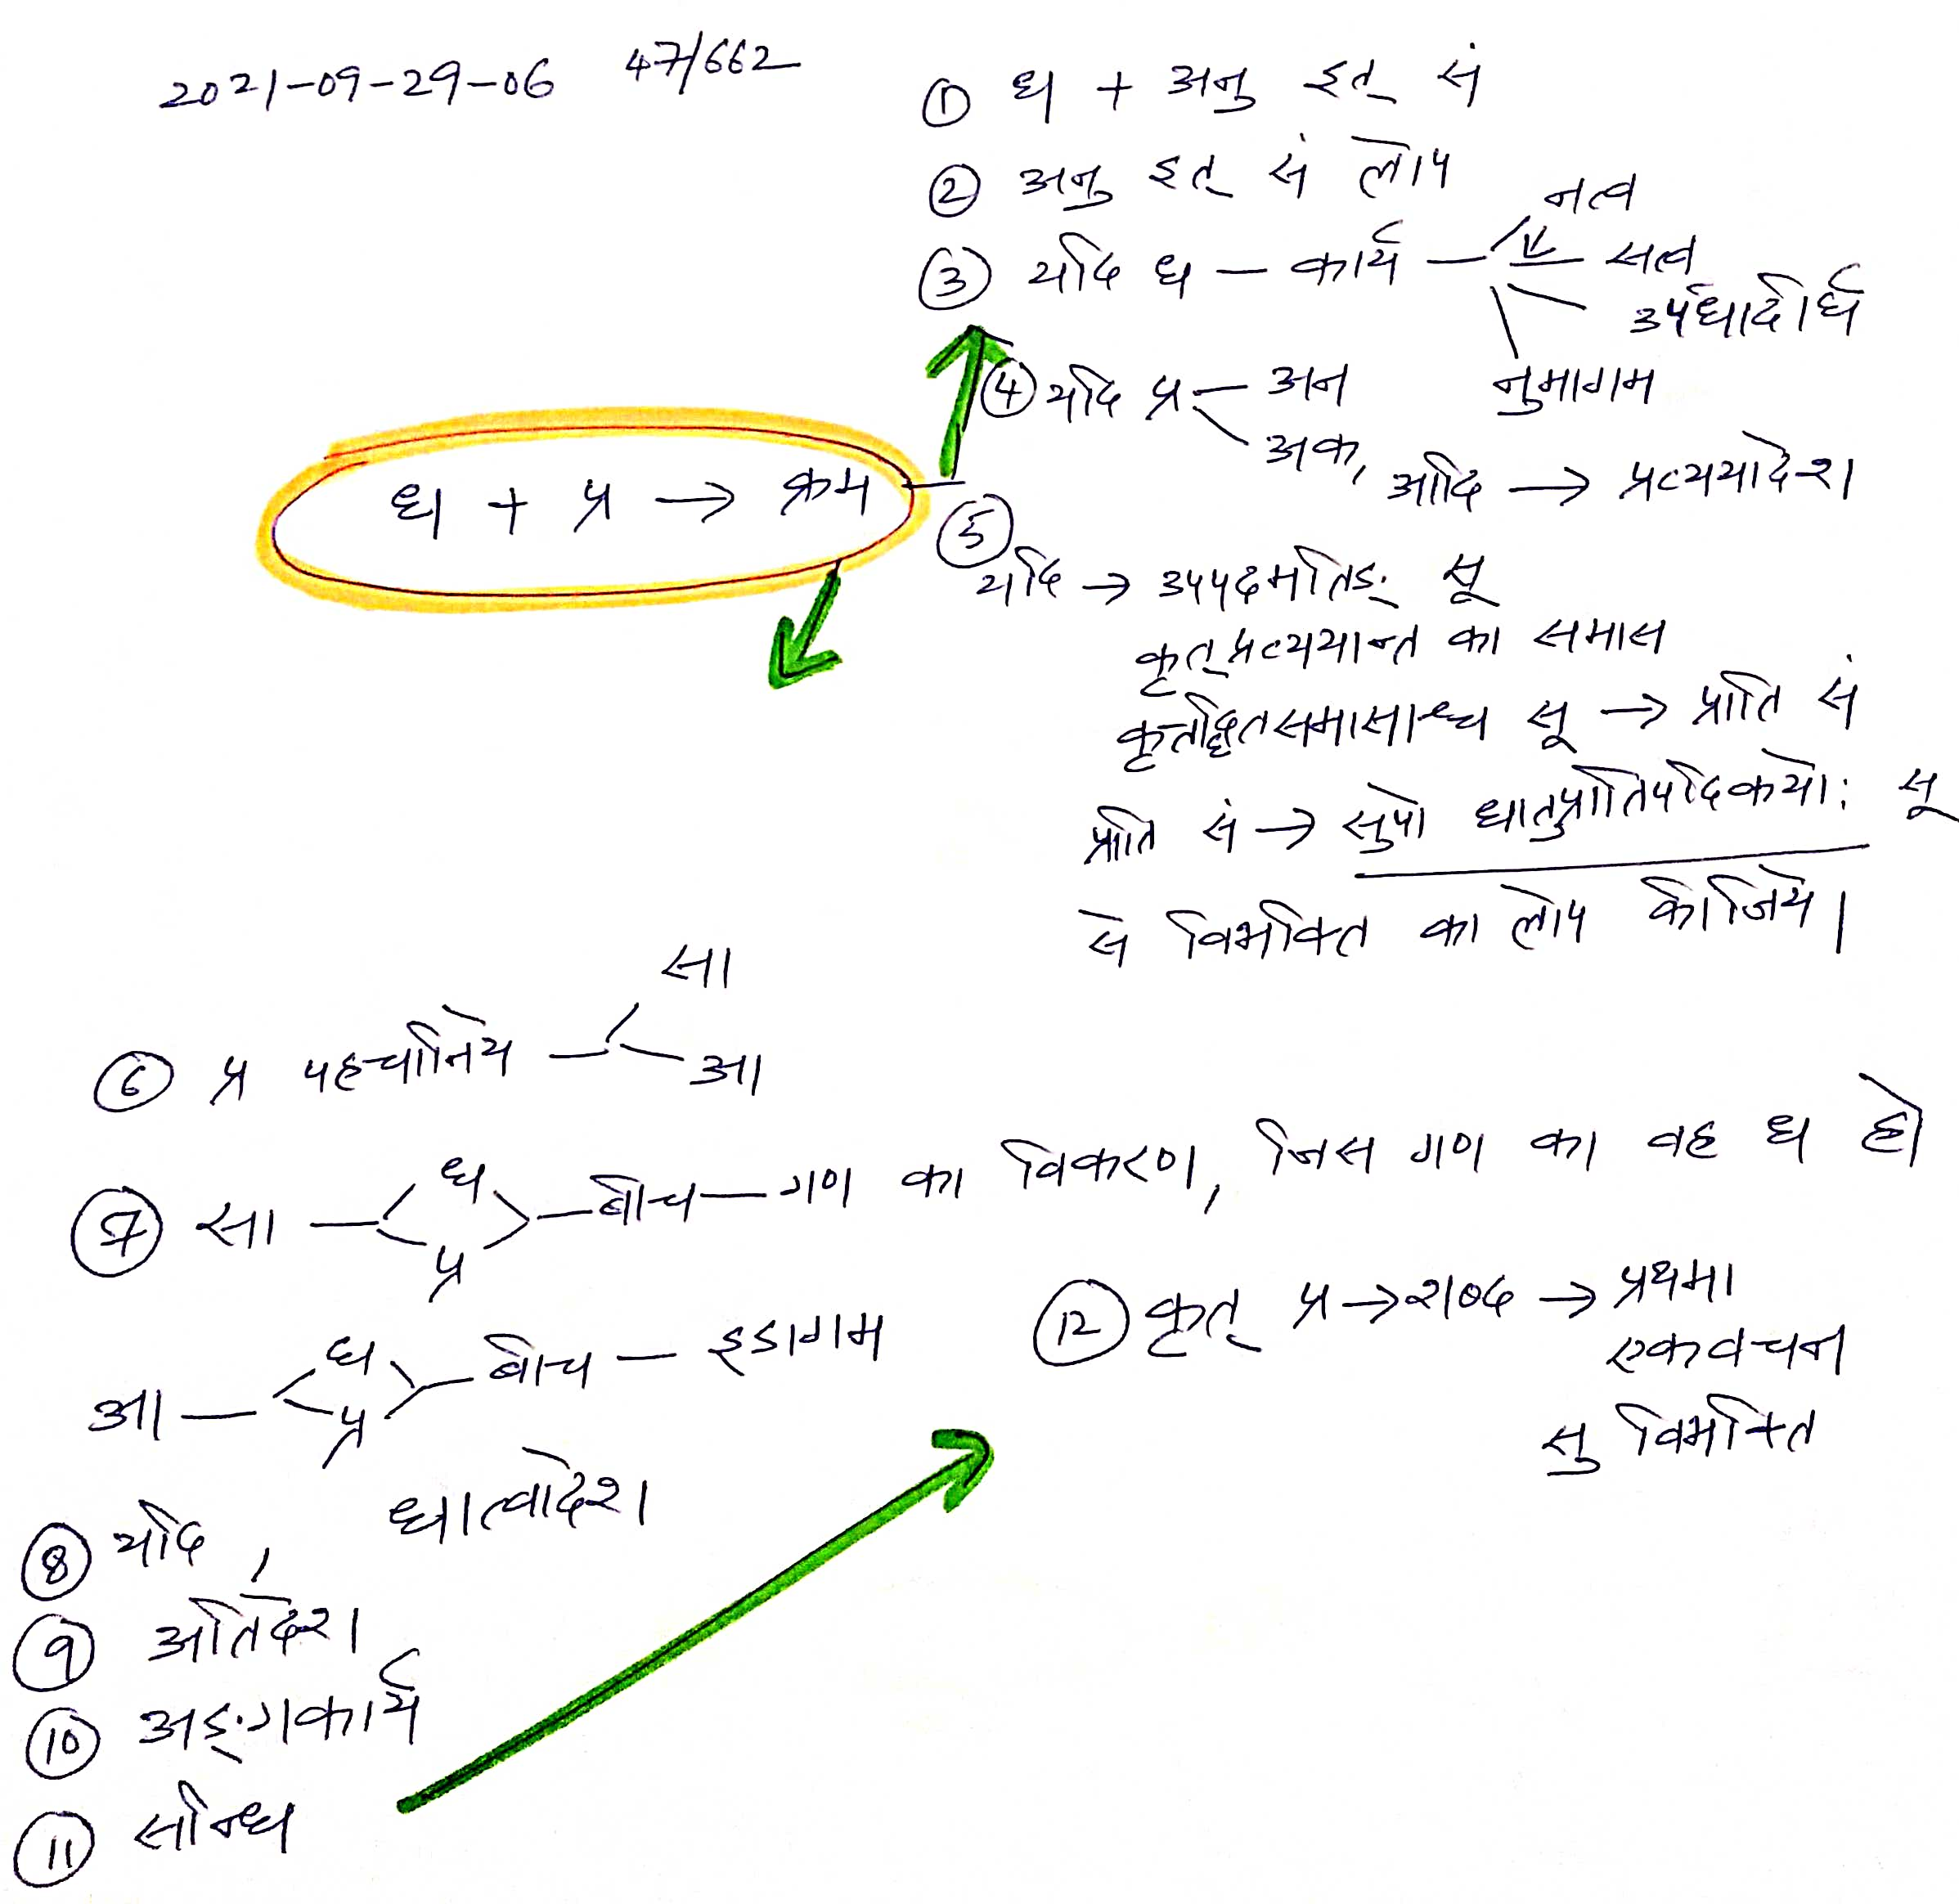 2021-09-29-06 47/662
① ध + अनु इत् सं
② अनु इत् सं लोप
③ यदि ध — कार्य — नत्व
सत्व
उपधादीर्घ
नुमागम
④ यदि प्र — अन
अक, आदि → प्रत्ययादेश
ध + प्र → क्रम
⑤
यदि → उपपदमतिङ् सू
कृत् प्रत्ययान्त का समास
कृत्तद्धितसमासाश्च सू → प्राति सं
प्राति सं → सुपो धातुप्रातिपदिकयोः सू
से विभक्ति का लोप कीजिये।
सा
⑥ प्र पहचानिये — आ
⑦ सा — ध प्र — बीच — गण का विकरण, जिस गण का वह ध हो
आ — ध प्र — बीच — इडागम
⑧ यदि, धात्वादेश
⑨ अतिदेश
⑩ अङ्गकार्य
⑪ सन्धि
⑫ कृत् प्र → शब्द → प्रथमा
एकवचन
सु विभक्ति